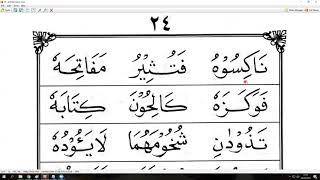 ٢٤
نَاكِسُوْهُ فَتُثِيْرُ مَفَاتِحَهٗ
فَوَكَزَهٗ كَالِحُوْنَ كِتَابَهٗ
تَذُوْدَانِ شُحُوْمَهُمَا لَايَؤُدُهٗ